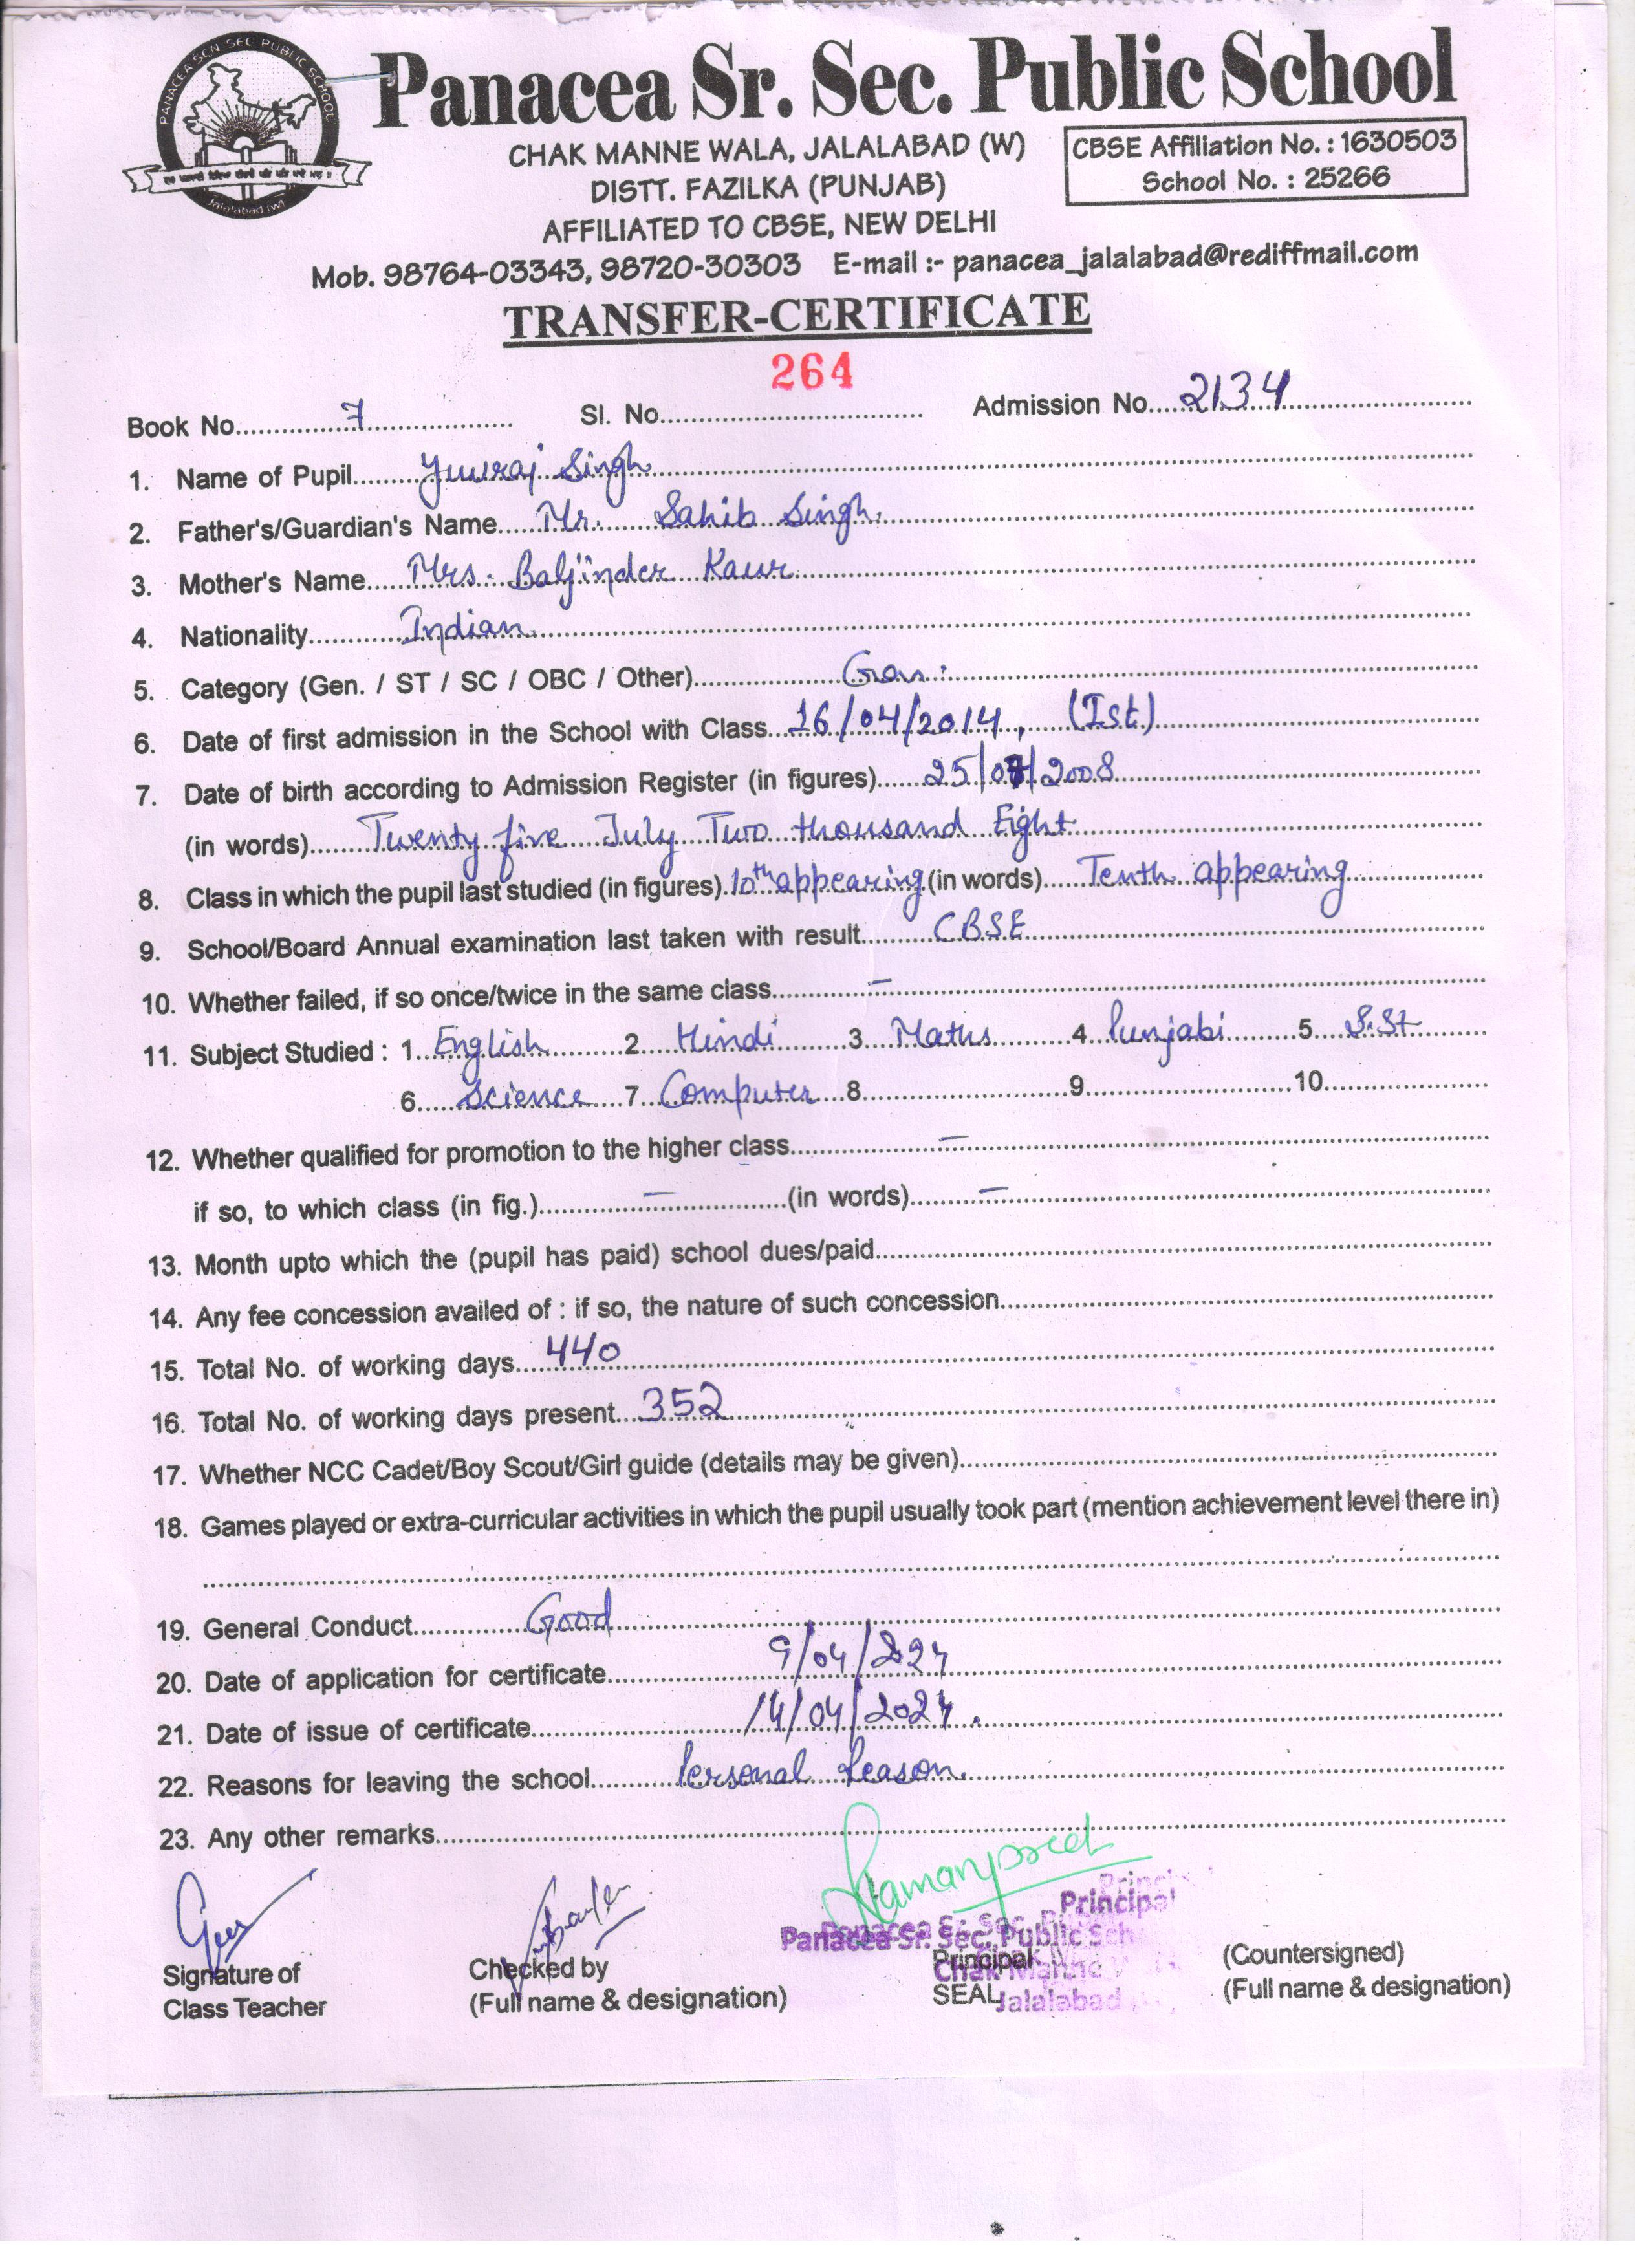 PANACEA SCN SEC PUBLIC SCHOOL
Jalalabad (W)
Panacea Sr. Sec. Public School
CHAK MANNE WALA, JALALABAD (W)
CBSE Affiliation No. : 1630503
School No. : 25266
DISTT. FAZILKA (PUNJAB)
AFFILIATED TO CBSE, NEW DELHI
Mob. 98764-03343, 98720-30303 E-mail :- panacea_jalalabad@rediffmail.com
TRANSFER-CERTIFICATE
264
Book No. 7 Sl. No. Admission No. 2134
1. Name of Pupil Yuvraj Singh
2. Father's/Guardian's Name Mr. Sahib Singh
3. Mother's Name Mrs. Baljinder Kaur
4. Nationality Indian
5. Category (Gen. / ST / SC / OBC / Other) Gen.
6. Date of first admission in the School with Class 16/04/2014, (Ist)
7. Date of birth according to Admission Register (in figures) 25/07/2008
(in words) Twenty five July Two thousand Eight
8. Class in which the pupil last studied (in figures) 10th appearing (in words) Tenth appearing
9. School/Board Annual examination last taken with result CBSE
10. Whether failed, if so once/twice in the same class –
11. Subject Studied : 1 English 2 Hindi 3 Maths 4 Punjabi 5 S.St
6 Science 7 Computer 8 9 10
12. Whether qualified for promotion to the higher class –
if so, to which class (in fig.) – (in words) –
13. Month upto which the (pupil has paid) school dues/paid
14. Any fee concession availed of : if so, the nature of such concession
15. Total No. of working days 440
16. Total No. of working days present 352
17. Whether NCC Cadet/Boy Scout/Girl guide (details may be given)
18. Games played or extra-curricular activities in which the pupil usually took part (mention achievement level there in)
19. General Conduct Good
20. Date of application for certificate 9/04/2024
21. Date of issue of certificate 14/04/2024.
22. Reasons for leaving the school Personal Reason.
23. Any other remarks
Ramanpreet
Principal
Panacea Sr. Sec. Public Sch
Signature of
Class Teacher
Checked by
(Full name & designation)
Principal
SEAL
Jalalabad
(Countersigned)
(Full name & designation)